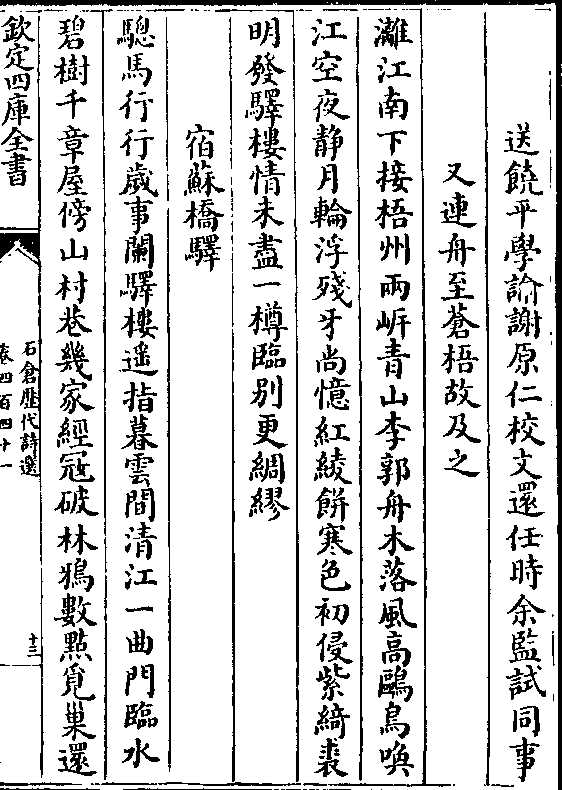 送饒平學諭謝原仁校文還任時余監試同事
又連舟至蒼梧故及之
灕江南下接梧州兩岍青山李郭舟木落風高鷗鳥喚
江空夜静月輪浮殘牙尚憶紅綾餅寒色初侵紫綺裘
明發驛樓情未盡一樽臨别更綢繆
宿蘇橋驛
驄馬行行歲事闌驛樓遥指暮雲間清江一曲門臨水
碧樹千章屋傍山村巷幾家經冦破林鴉數㸃覓巢還
欽定四庫全書
石倉歷代詩選
卷四百四十一
十三